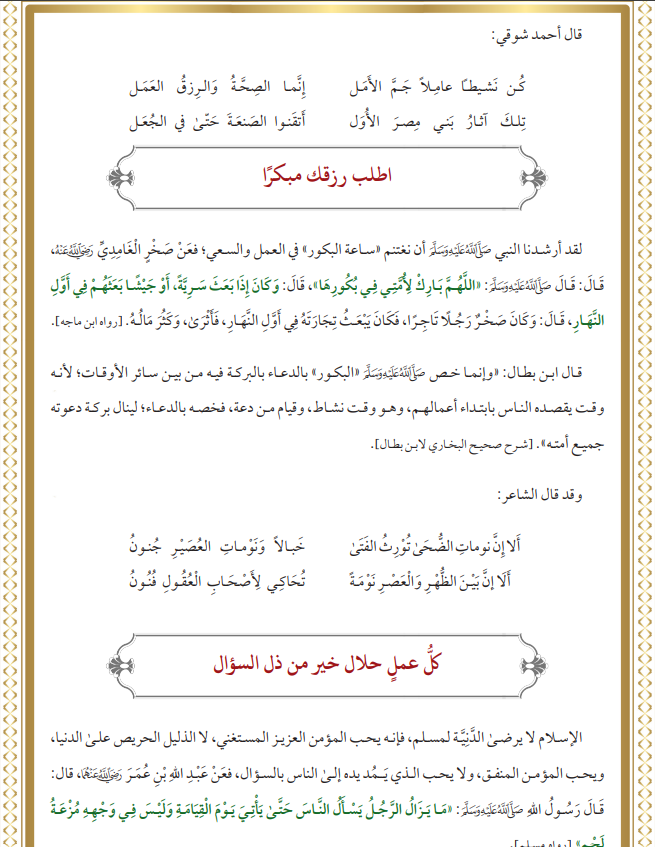 قال أحمد شوقي:
كُن نَشيطًا عامِلاً جَمَّ الأَمَل إِنَّما الصِحَّةُ وَالرِزقُ العَمَل
تِلكَ آثارُ بَني مِصرَ الأُوَل أَتقَنوا الصَنعَةَ حَتّىٰ في الجُعَل
اطلب رزقك مبكرًا
لقد أرشدنا النبي ﷺ أن نغتنم «ساعة البكور» في العمل والسعي؛ فعَنْ صَخْرٍ الْغَامِدِيِّ رَضِيَ اللَّهُ عَنْهُ،
قَالَ: قَالَ ﷺ: «اللَّهُمَّ بَارِكْ لِأُمَّتِي فِي بُكُورِهَا»، قَالَ: وَكَانَ إِذَا بَعَثَ سَرِيَّةً، أَوْ جَيْشًا بَعَثَهُمْ فِي أَوَّلِ
النَّهَارِ، قَالَ: وَكَانَ صَخْرٌ رَجُلًا تَاجِرًا، فَكَانَ يَبْعَثُ تِجَارَتَهُ فِي أَوَّلِ النَّهَارِ، فَأَثْرَىٰ، وَكَثُرَ مَالُهُ. [رواه ابن ماجه].
قال ابن بطال: «وإنما خص ﷺ «البكور» بالدعاء بالبركة فيه من بين سائر الأوقات؛ لأنه
وقت يقصده الناس بابتداء أعمالهم، وهو وقت نشاط، وقيام من دعة، فخصه بالدعاء؛ لينال بركة دعوته
جميع أمته». [شرح صحيح البخاري لابن بطال].
وقد قال الشاعر:
أَلا إِنَّ نوماتِ الضُّحَىٰ تُوْرِثُ الفَتَىٰ خَبالاً وَنَوْماتِ العُصَيْرِ جُنونُ
أَلَا إنَّ بَيْنَ الظُّهْرِ وَالْعَصْرِ نَوْمَةً تُحَاكِي لِأَصْحَابِ الْعُقُولِ فُنُونُ
كلُّ عملٍ حلال خير من ذل السؤال
الإسلام لا يرضىٰ الدَّنِيَّة لمسلم، فإنه يحب المؤمن العزيز المستغني، لا الذليل الحريص علىٰ الدنيا،
ويحب المؤمن المنفق، ولا يحب الذي يَمُد يده إلىٰ الناس بالسؤال، فعَنْ عَبْدِ اللهِ بْنِ عُمَرَ رَضِيَ اللَّهُ عَنْهُمَا، قال:
قَالَ رَسُولُ اللهِ ﷺ: «مَا يَزَالُ الرَّجُلُ يَسْأَلُ النَّاسَ حَتَّىٰ يَأْتِيَ يَوْمَ الْقِيَامَةِ وَلَيْسَ فِي وَجْهِهِ مُزْعَةُ
لَحْمٍ» [رواه مسلم].